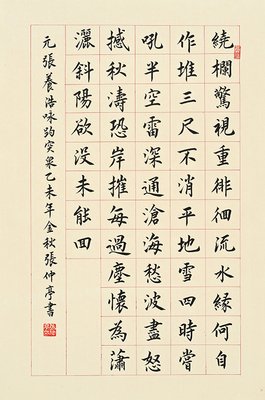 繞欄驚視重徘徊流水緣何自
作堆三尺不消平地雪四時嘗
吼半空雷深通滄海愁波盡怒
撼秋濤恐岸摧每過塵懷為瀟
灑斜陽欲没未能回
元張養浩咏趵突泉乙未年金秋張仲亭書